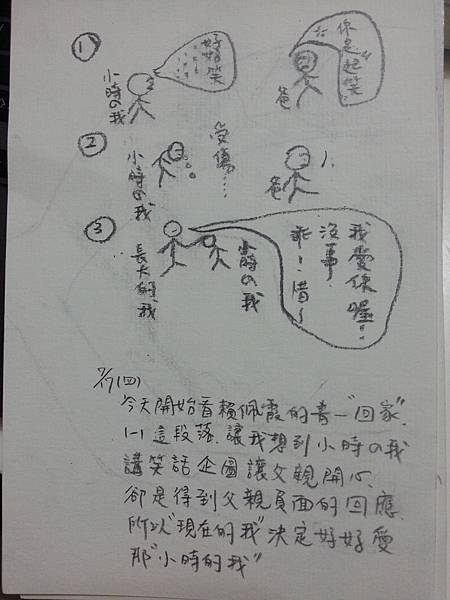 ①
好好笑
小時の我
你是"起笑"
爸
②
小時の我
受傷……
爸
③
長大的我
小時の我
我愛你喔!
沒事
乖!惜
7/17(四)
今天開始看賴佩霞的書-"回家".
1-1 這段落.讓我想到小時の我
講笑話企圖讓父親開心.
卻是得到父親負面的回應.
所以"現在的我"決定好好愛
那"小時的我"